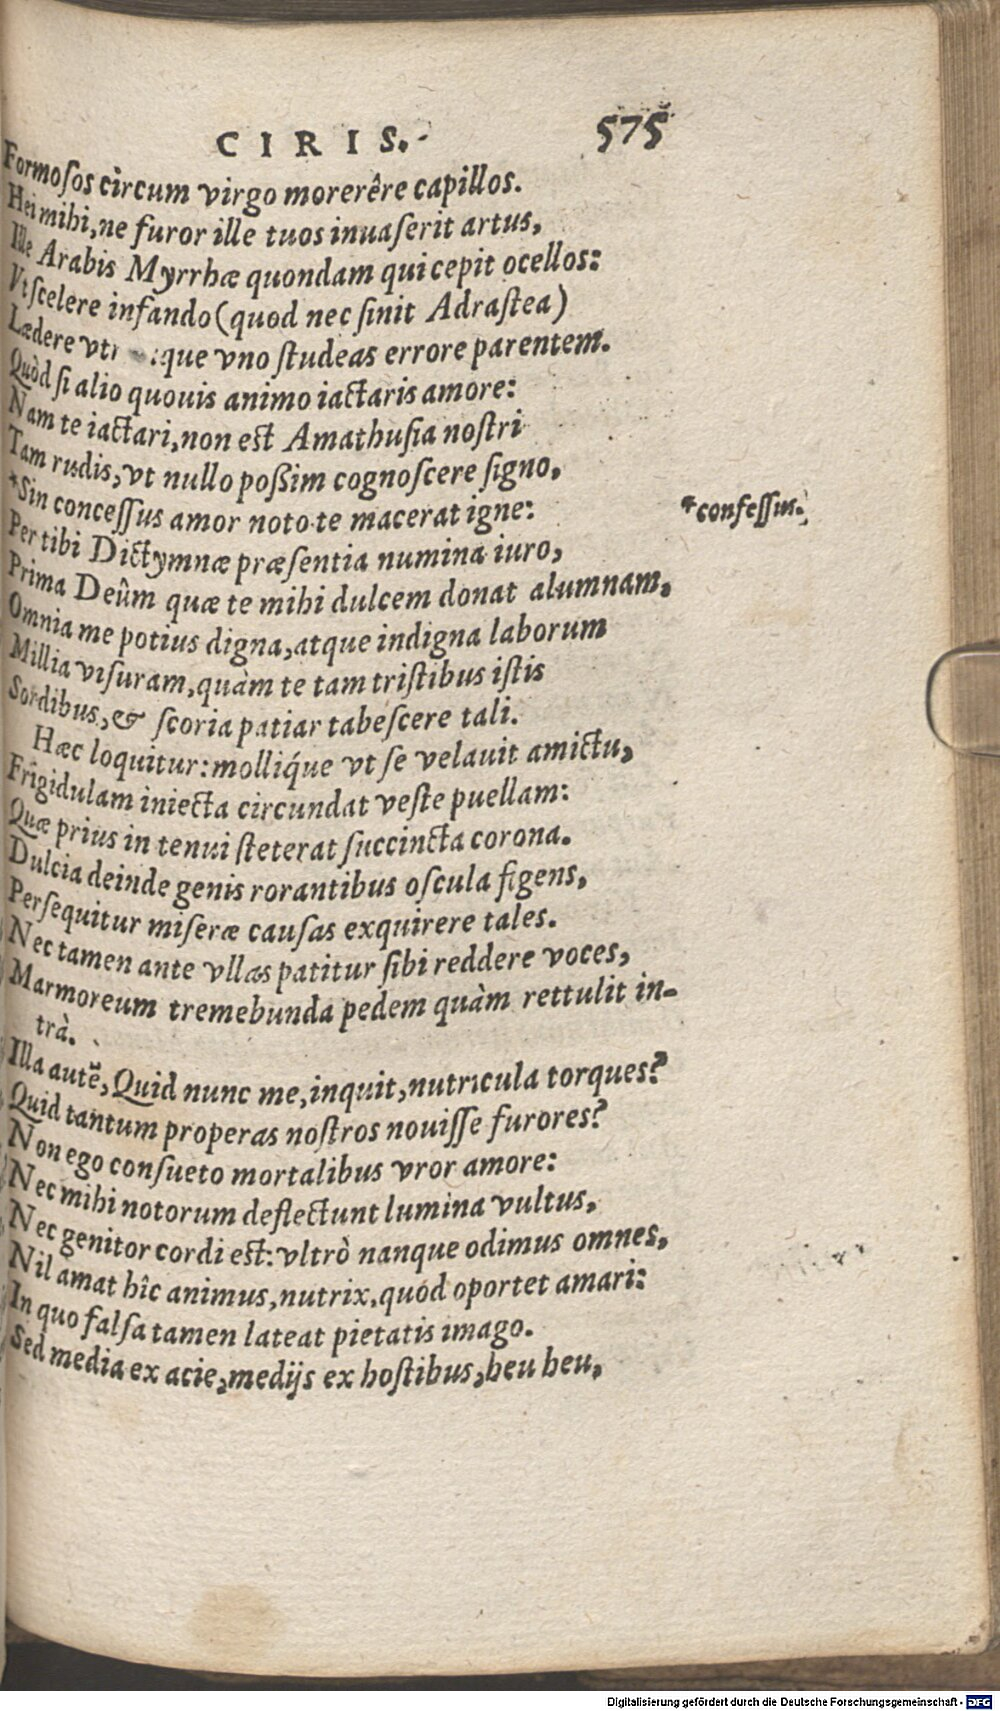 CIRIS. 575
Formoſos circum virgo morerêre capillos.
Hei mihi, ne furor ille tuos inuaſerit artus,
Ille Arabis Myrrhæ quondam qui cepit ocellos:
Vt ſcelere infando (quod nec ſinit Adraſtea)
Lædere vno ſtudeas errore parentem.
Quòd ſi alio quouis animo iactaris amore:
Nam te iactari, non est Amathuſia noſtri
Tam rudis, vt nullo poßim cognoſcere ſigno,
*Sin conceſſus amor noto te macerat igne: *confeſſus.
Per tibi Dictymnæ præſentia numina iuro,
Prima Deûm quæ te mihi dulcem donat alumnam,
Omnia me potius digna, atque indigna laborum
Millia viſuram, quàm te tam triſtibus iſtis
Sordibus, & ſcoria patiar tabeſcere tali.
Hæc loquitur: molliq́ue vt ſe velauit amictu,
Frigidulam iniecta circundat veſte puellam:
Quæ prius in tenui ſteterat ſuccincta corona.
Dulcia deinde genis rorantibus oſcula figens,
Perſequitur miſeræ cauſas exquirere tales.
Nec tamen ante vllas patitur ſibi reddere voces,
Marmoreum tremebunda pedem quàm rettulit in-
trà.
Illa autē, Quid nunc me, inquit, nutricula torques?
Quid tantum properas noſtros nouiſſe furores?
Non ego conſueto mortalibus vror amore:
Nec mihi notorum deflectunt lumina vultus,
Nec genitor cordi est: vltrò nanque odimus omnes,
Nil amat hîc animus, nutrix, quod oportet amari:
In quo falſa tamen lateat pietatis imago.
Sed media ex acie, medijs ex hoſtibus, heu heu,
Digitalisierung gefördert durch die Deutsche Forschungsgemeinschaft - DFG